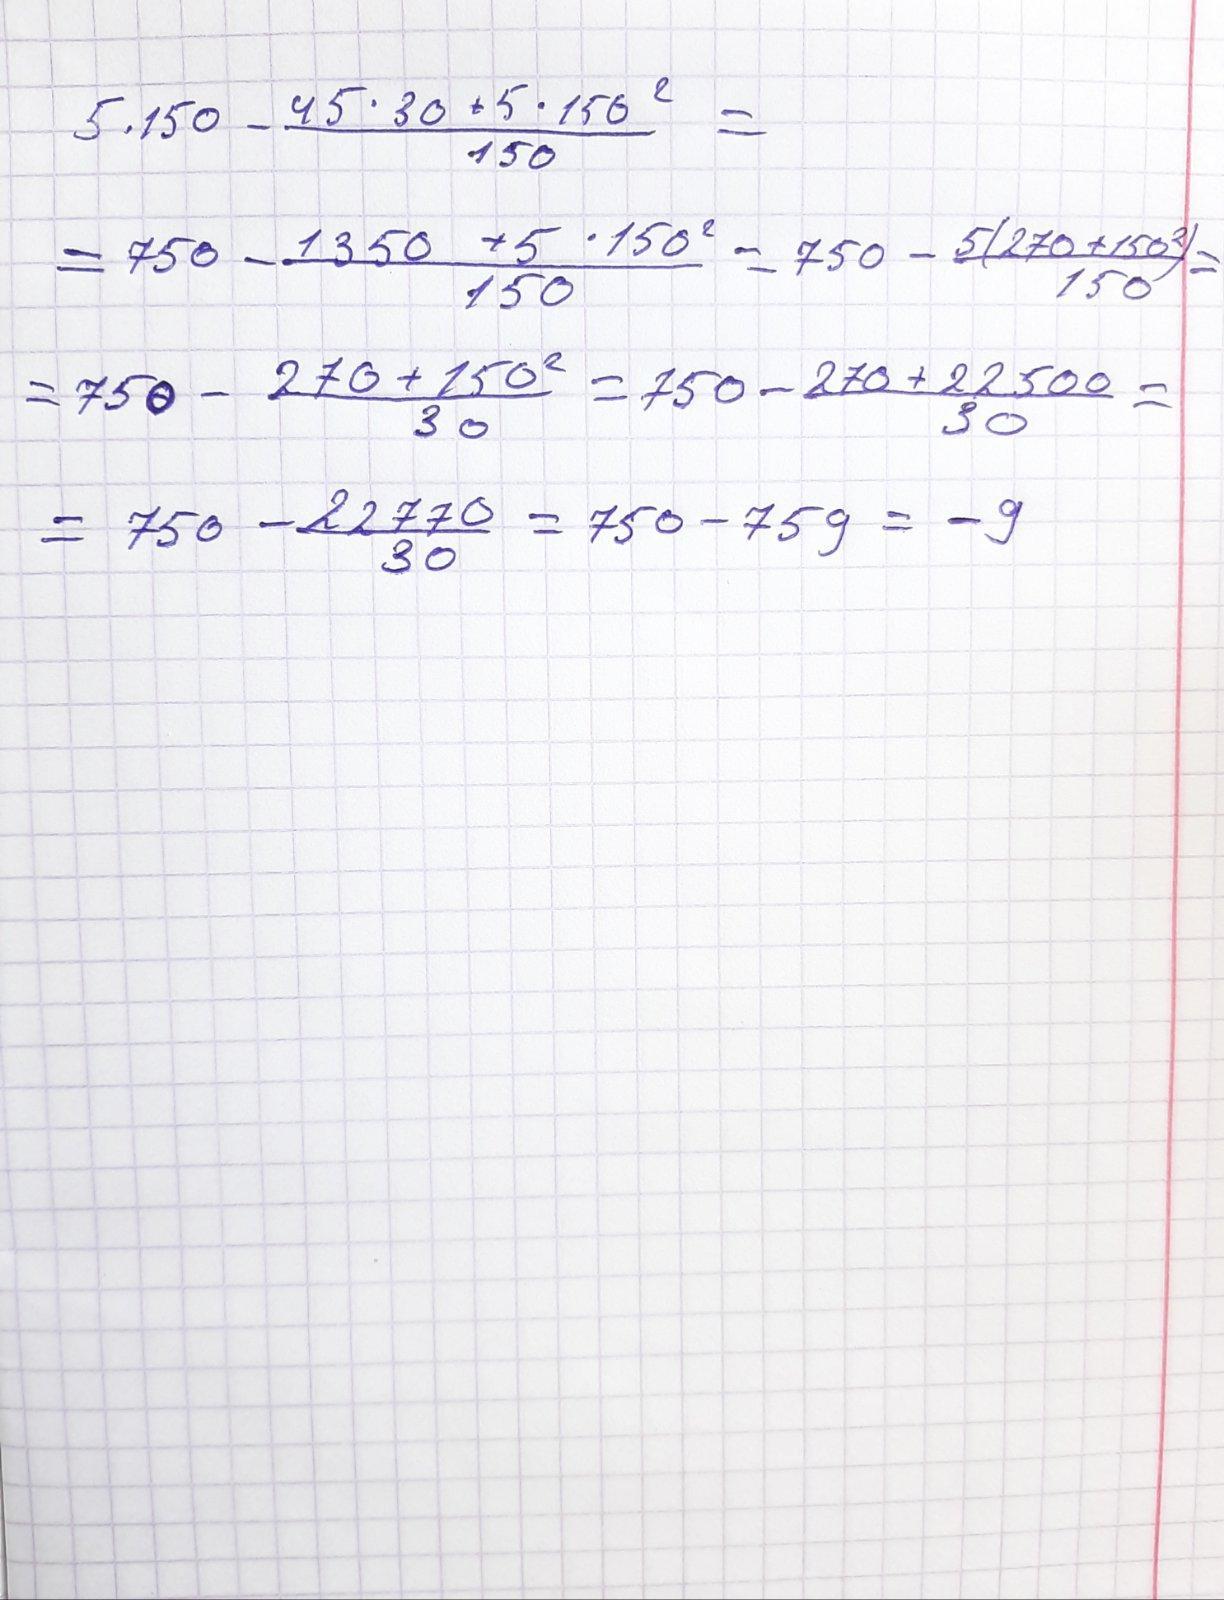 5·150 - (45·30 + 5·150²)/150 =
= 750 - (1350 + 5·150²)/150 = 750 - 5(270 + 150²)/150 =
= 750 - (270 + 150²)/30 = 750 - (270 + 22500)/30 =
= 750 - 22770/30 = 750 - 759 = -9